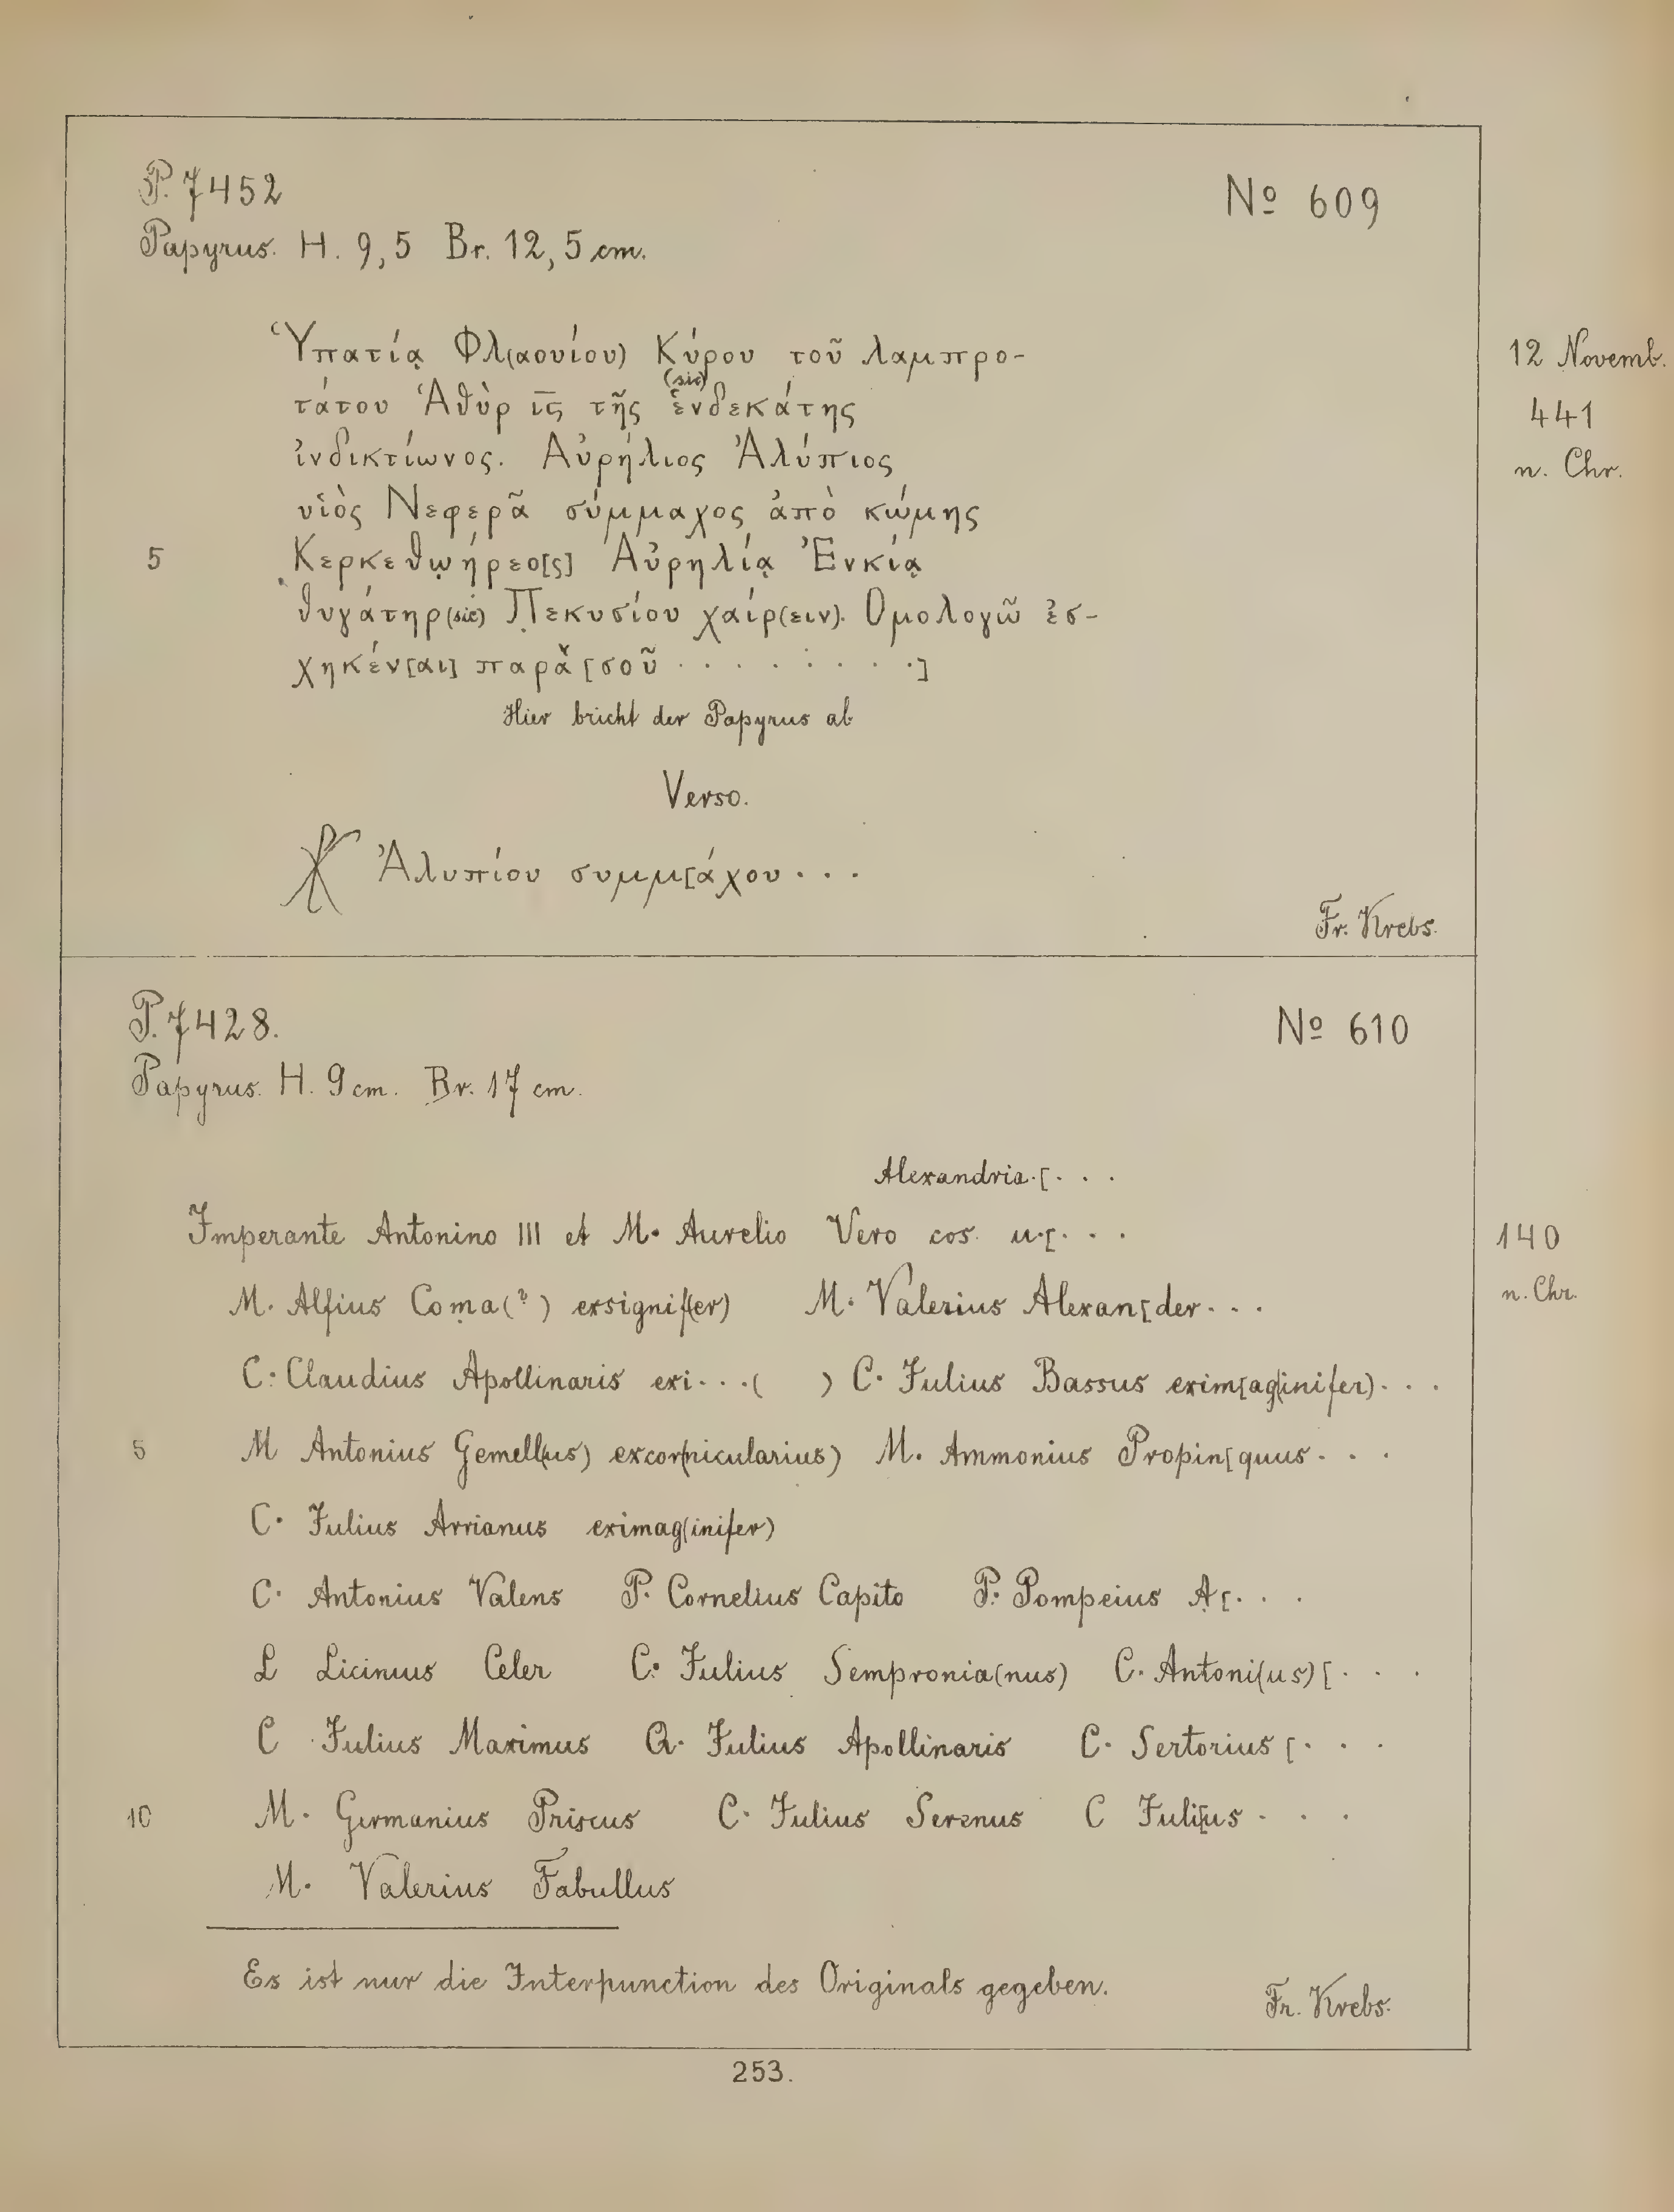 P. 7452
Nº 609
Papyrus. H. 9,5 Br. 12,5 cm.
Ὑπατίᾳ Φλ(αουίου) Κύρου τοῦ λαμπρο-
12 Novemb.
(sic)
τάτου Ἁθὺρ ῑς̄ τῆς ἑνδεκάτης
441
ἰνδικτίωνος. Αὐρήλιος Ἀλύπιος
n. Chr.
υἱὸς Νεφερᾶ σύμμαχος ἀπὸ κώμης
5 Κερκεθῳήρεο[ς] Αὐρηλίᾳ Ἐνκίᾳ
θυγάτηρ(sic) Πεκυσίου χαίρ(ειν). Ομολογῶ ἐσ-
χηκέν[αι] παρὰ [σοῦ · · · · · · · ·]
Hier bricht der Papyrus ab
Verso.
Ἀλυπίου συμμ[άχου · · ·
Fr. Krebs.
P. 7428.
Nº 610
Papyrus. H. 9 cm. Br. 17 cm.
Alexandria·[· · ·
Imperante Antonino III et M· Aurelio Vero cos. u·[· · ·
140
M· Alfius Coma(?) exsignif(er) M· Valerius Alexan[der · · ·
n. Chr.
C· Claudius Apollinaris exi· · ·( ) C· Julius Bassus exim[ag(inifer) · · ·
5 M Antonius Gemell(us) excor(nicularius) M· Ammonius Propin[quus · · ·
C· Julius Arrianus eximag(inifer)
C· Antonius Valens P· Cornelius Capito P· Pompeius Ạ[· · ·
L Licinius Celer C· Julius Sempronia(nus) C· Antoni(us) [· · ·
C Julius Maximus Q· Julius Apollinaris C· Sertorius [· · ·
10 M· Germanius Priscus C· Julius Serenus C Juli[us · · ·
M· Valerius Fabullus
Es ist nur die Interpunction des Originals gegeben.
Fr. Krebs.
253.